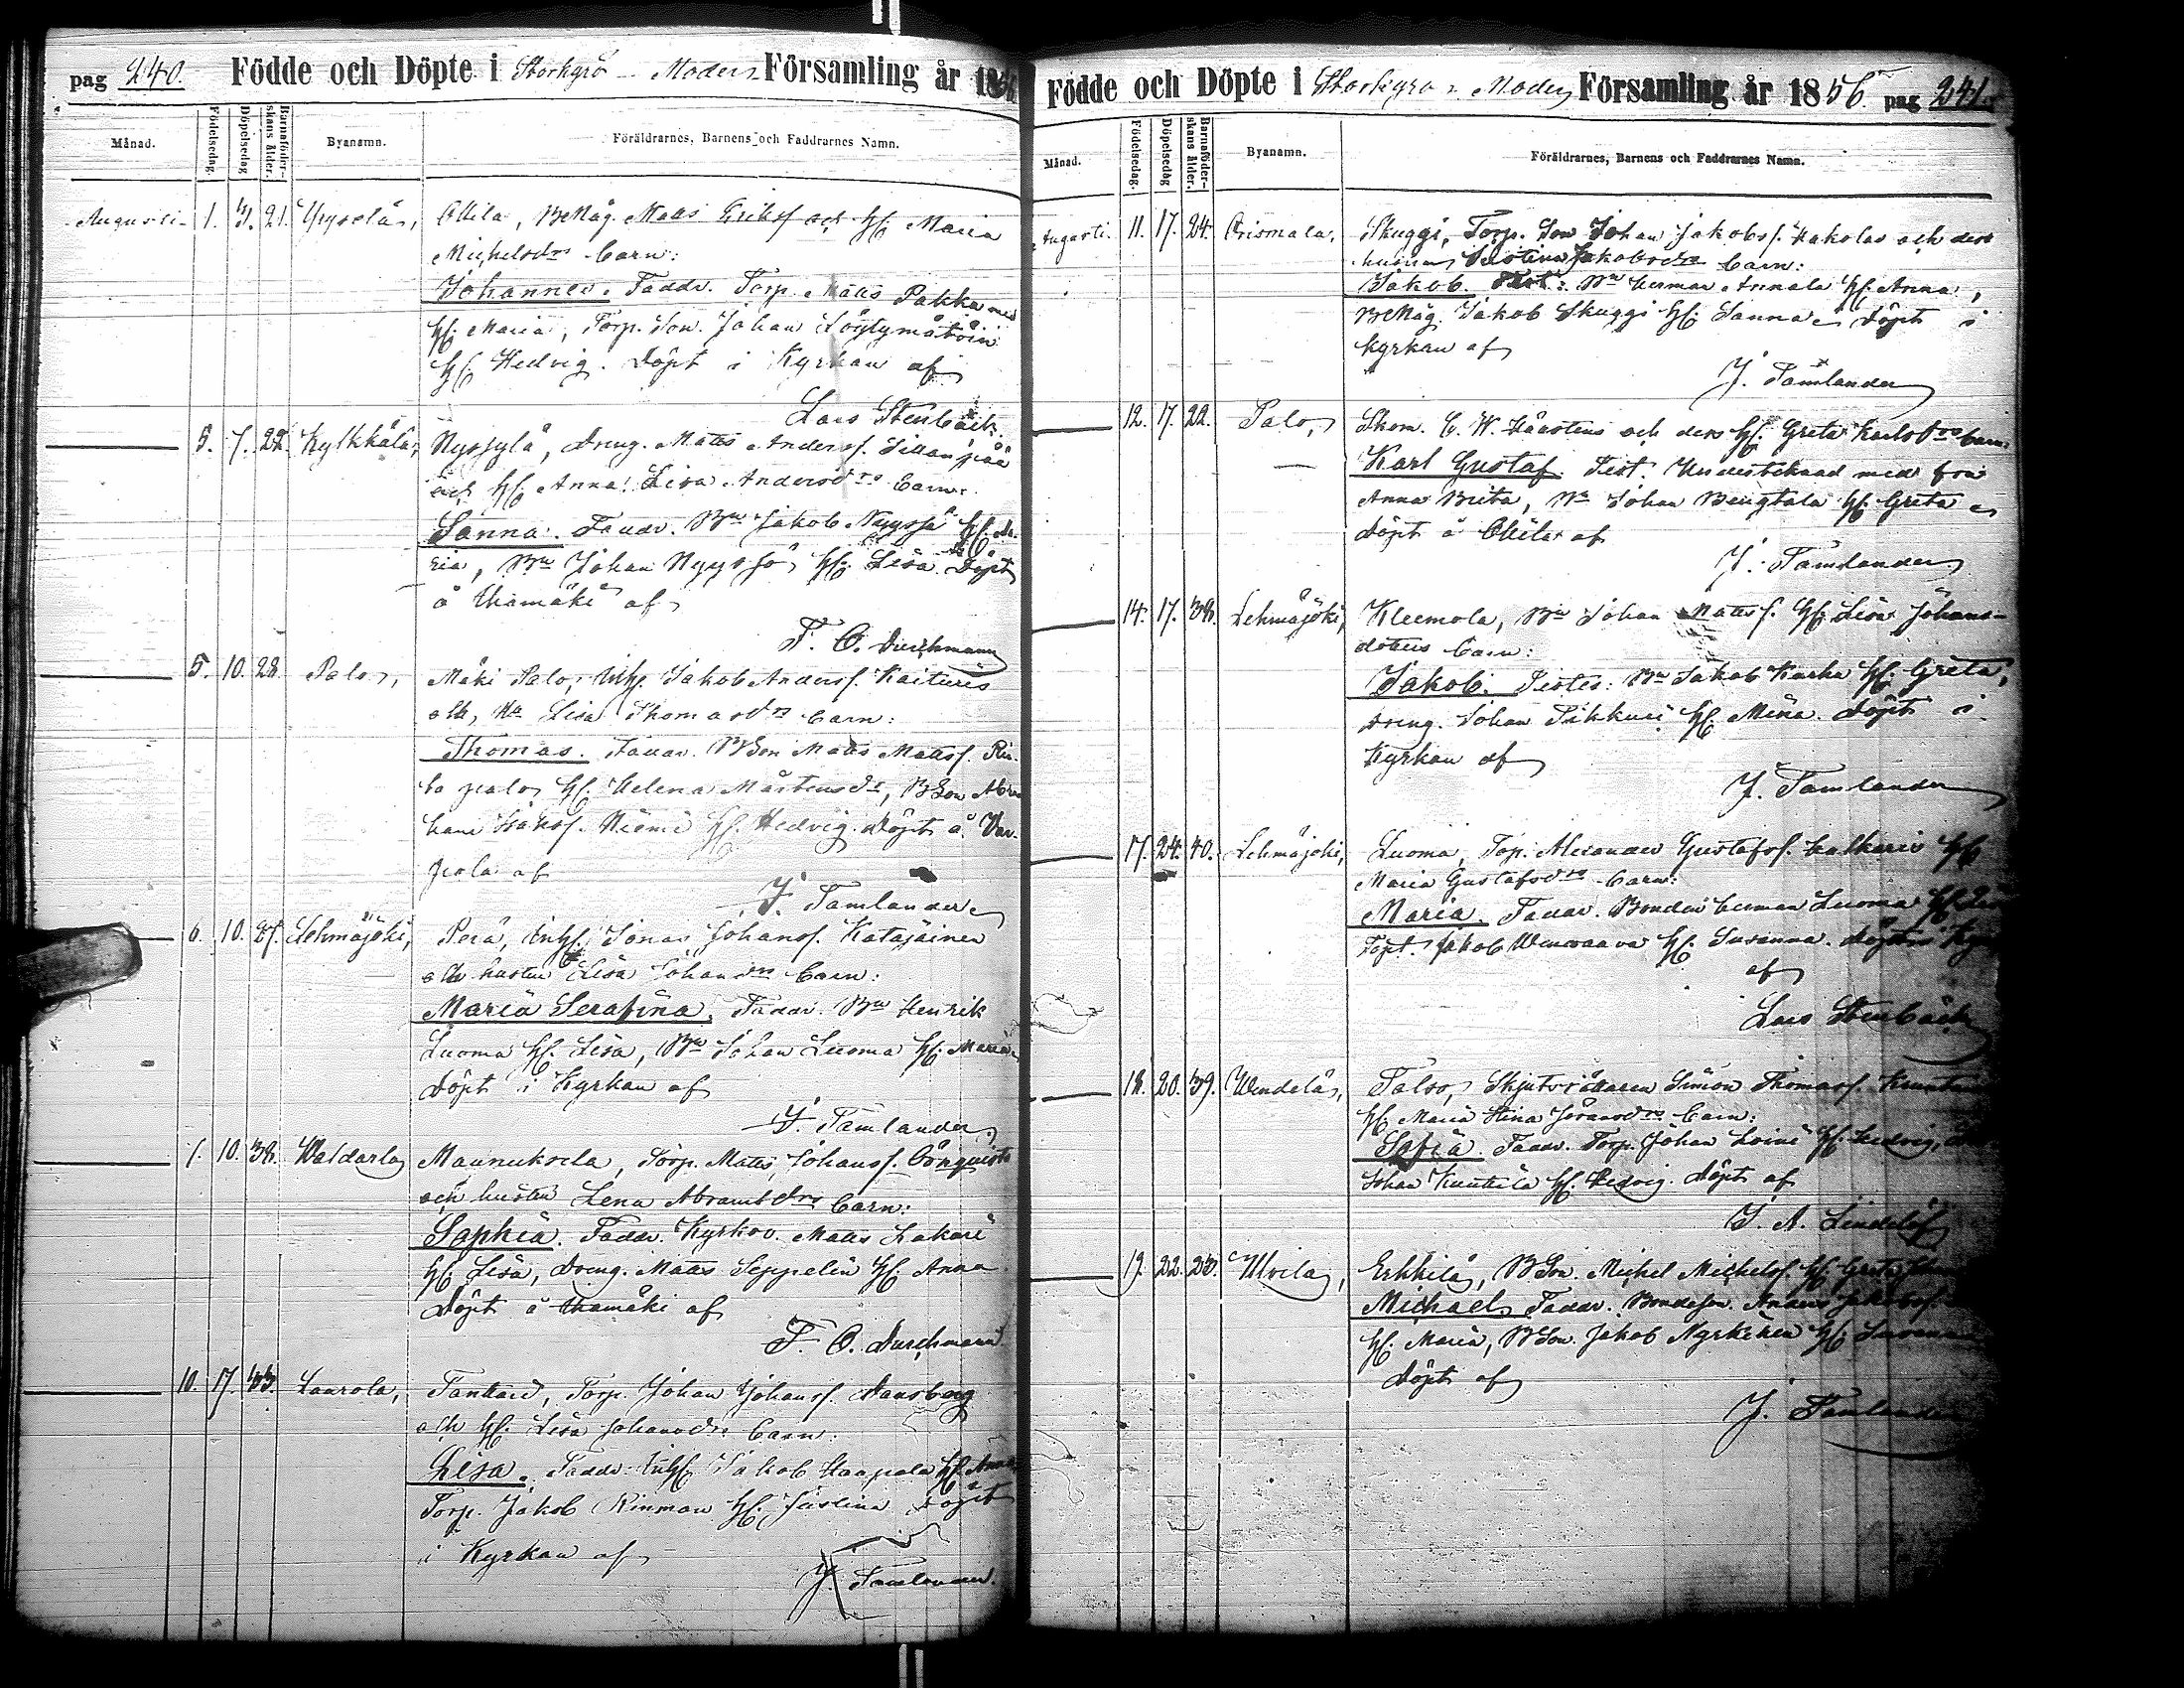 pag 240. Födde och Döpte i Storkyro Moder Församling år 1856
Månad. Födelsedag. Döpelsedag Barnaföder-skans ålder. Byanamn. Föräldrarnes, Barnens och Faddrarnes Namn.
Augusti 1. 3. 21. Yryselä, Ollila, BeMåg. Matts Eriksf och Hu Maria
Michelsdr barn:
Johannes. Faddr. Torp. Matts Pakka med
Hu Maria, Torp. Son. Johan Löylymäki
Hu Hedvig. Döpt i Kyrkan af
Lars Stenbäck.
5. 7. 22. Kylkkälä, Nyssylä, Dreng. Matts Andersf. Sillanpää
och Hu Anna Lisa Andersdr barn:
Sanna. Faddr. Bn Jakob Nyyssä Hu Ma-
ria, Bn Johan Nyyssä Hu Lisa Döpt
å Ihamäki af
F. O. Durchmann
5. 10. 28. Palo, Mäki Palo, Inh. Jakob Andersf. Kaituris
och Hu Lisa Thomasdr barn:
Thomas. Faddr. BSon Matts Mattsf. Rin-
ta palo Hu Helena Mårtensdr, BSon Abra
ham Isaksf. Niemi Hu Hedvig. Döpt å Var-
pola af
J. Tamlander
6. 10. 27. Lehmäjoki, Perä, Inh. Jonas Johansf. Katajainen
och hustru Lisa Johansdr barn:
Maria Serafina. Faddr. Bn Henrik
Luoma Hu Lisa, Bn Johan Luoma Hu Maria.
Döpt i Kyrkan af
J. Tamlander
7. 10. 38. Waldarla Maunuksela, Torp. Matts Johansf. Lönqvist
och hustru Lena Abramsdr barn:
Sophia. Faddr. Kyrkov. Matts Lakari
Hu Lisa, Dreng. Matts Seppelin Hu Anna.
Döpt å Ihamäki af
F. O. Durchmann
10. 17. 33. Laurola, Tanttari, Torp. Johan Johansf. Dansberg
och Hu Lisa Johansdr barn:
Lisa. Faddr. Inh. Jakob Haapala Hu Anna
Torp. Jakob Rinman Hu Justina Döpt
i Kyrkan af
J. Tamlander.
Födde och Döpte i Storkyro Moder Församling år 1856. pag 241.
Månad. Födelsedag. Döpelsedag Barnaföder-skans ålder. Byanamn. Föräldrarnes, Barnens och Faddrarnes Namn.
Augusti. 11. 17. 24. Orismala, Skuggi, Torp. Son Johan Jakobsf. Hakolas och dess
hustru Justina Jakobsdr barn:
Jakob. Test: Bn Herman Annala Hu Anna,
BeMåg. Jakob Skuggi Hu Sanna. Döpt i
kyrkan af
J. Tamlander
12. 17. 22. Palo, Skom. C. W. Håkstens och dess Hu Greta Karlsdr barn:
Karl Gustaf. Test: med fru
Anna Brita, Bn Johan Bengtala Hu Greta
Döpt å Ollila af
J. Tamlander
14. 17. 38. Lehmäjoki, Kleemola, Bn Johan Mattsf. Hu Lisa Johans-
dotters barn:
Jakob. Testes: Bn Jakob Karhu Hu Greta,
Dreng. Johan Pikkuri Hu Mina. Döpt i
Kyrkan af
J. Tamlander
17. 24. 40. Lehmäjoki, Luoma, Torp. Alexander Gustafsf. Kalkaris Hu
Maria Gustafsdr barn:
Maria. Faddr. Bonden Herman Luoma Hu Lisa
Torp. Jakob Hu Susanna. Döpt i Kyrkan
af
Lars Stenbäck
18. 20. 39. Wendelä, Talso, Skjutsrättaren Simon Thomasf.
Hu Maria Stina Göransdr barn:
Sofia. Faddr. Torp. Johan Loine Hu Hedvig,
Johan Knuttila Hu Hedvig. Döpt af
J. A. Lindelöf
19. 22. 23. Ulvila, Erkkilä, BSon. Michel Michelsf. Hu Greta
Michael. Faddr. Bondeson. Anders Jakobsf.
Hu Maria, BSon. Jakob Myrkiken Hu Susanna
Döpt af
J. Tamlander